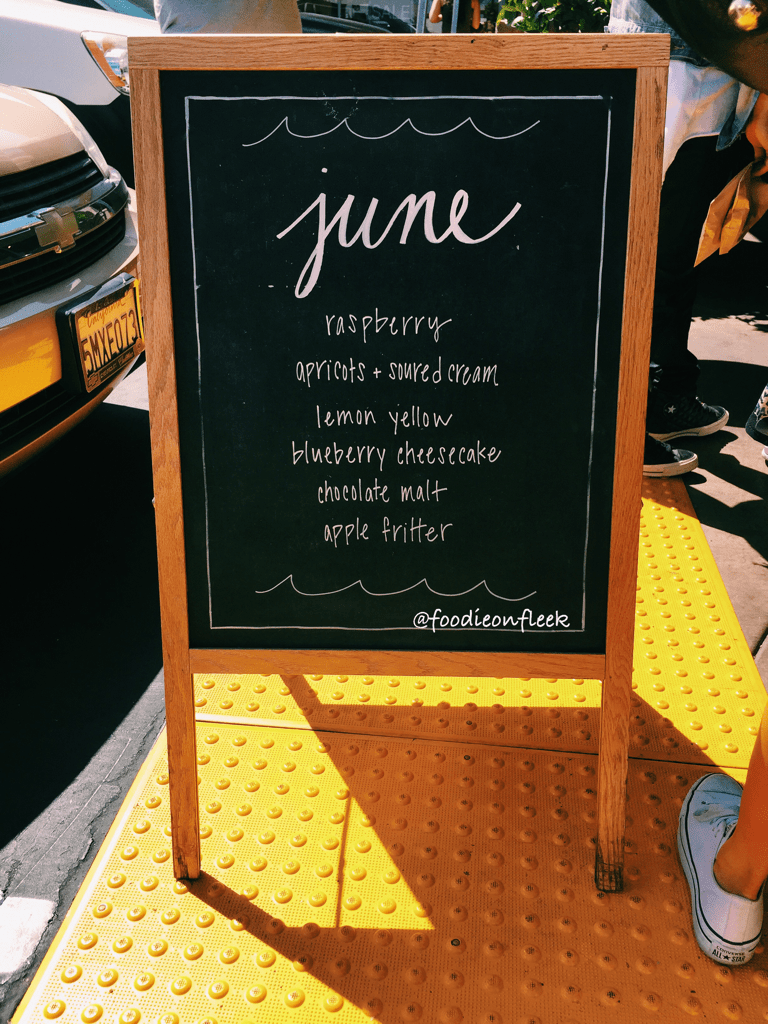 june
raspberry
apricots + soured cream
lemon yellow
blueberry cheesecake
chocolate malt
apple fritter
@foodieonfleek
California
5MXE073
CONVERSE
ALL ★ STAR